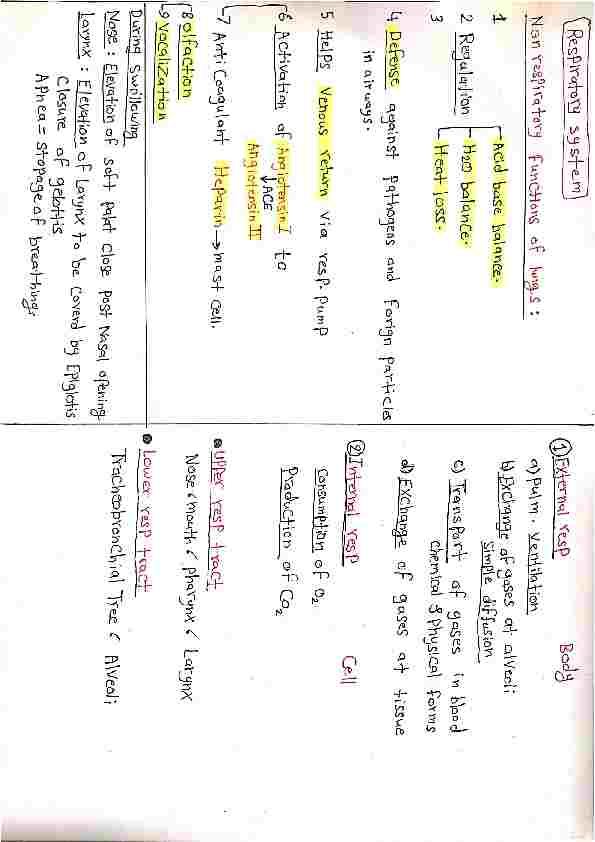 Respiratory system
Non respiratory functions of lungs :
1 Acid base balance.
2 Regulation H2O balance.
3 Heat loss.
4 Defense against pathogens and Forign particles
in airways.
5 Helps venous return via resp. pump
6 Activation of Angiotensin I to
↓ACE
Angiotensin II
7 Anti Coagulant Heparin → mast cell.
8 olfaction
9 vocalization
During Swillowing
Nose : Elevation of soft palat close post Nasal opening
Larynx : Elevation of Larynx to be Coverd by Epiglotis
Closure of gelotis
Aphea = stopage of breathings
① External resp Body
a) pulm. ventilation
b) Exchange of gases at alveoli
simple diffusion
c) Transport of gases in blood
chemical & physical forms
d) Exchange of gases at tissue
② Internal resp Cell
Consumption of O2
Production of Co2
• Upper resp tract
Nose, mouth, pharynx, Larynx
• Lower resp tract
Tracheobronchial Tree, Alveoli